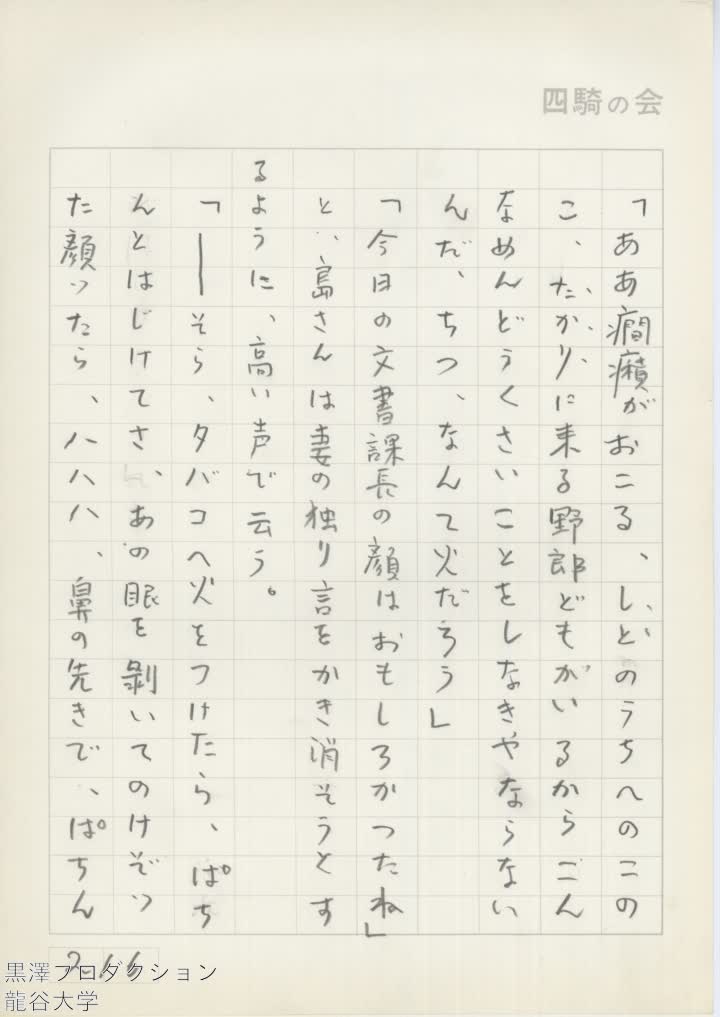 四騎の会
「ああ癇癪がおこる、しどのうちへのこの
こ、たかりに来る野郎どもがいるからこん
なめんどうくさいことをしなきやならない
んだ、ちつ、なんて火だろう」
「今日の文書課長の顔はおもしろかつたね」
と、島さんは妻の独り言をかき消そうとす
るように、高い声で云う。
「――そら、タバコへ火をつけたら、ぱち
んとはじけてさ、あの眼を剝いてのけぞつ
た顔つたら、ハハハ、鼻の先きで、ぱちん
黒澤プロダクション
龍谷大学